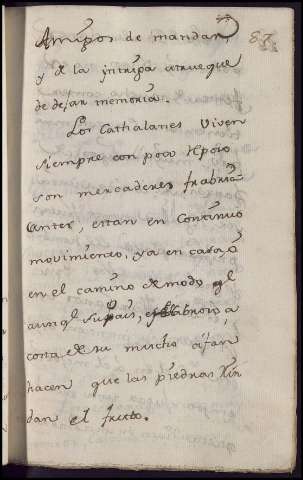 87.
Amigos de mandar,
y de la intriga atrueque
de dejar memoria.
Los Cathalanes viven
siempre con poco Repoio
son mercaderes fabric-
antes, estan en continuo
movimiento, ya en casa, ó
en el camino de modo ql
aunql su pais, es fabroio, á
costa de su mucho afan
hacen que las piedras Rin
dan el fruto.